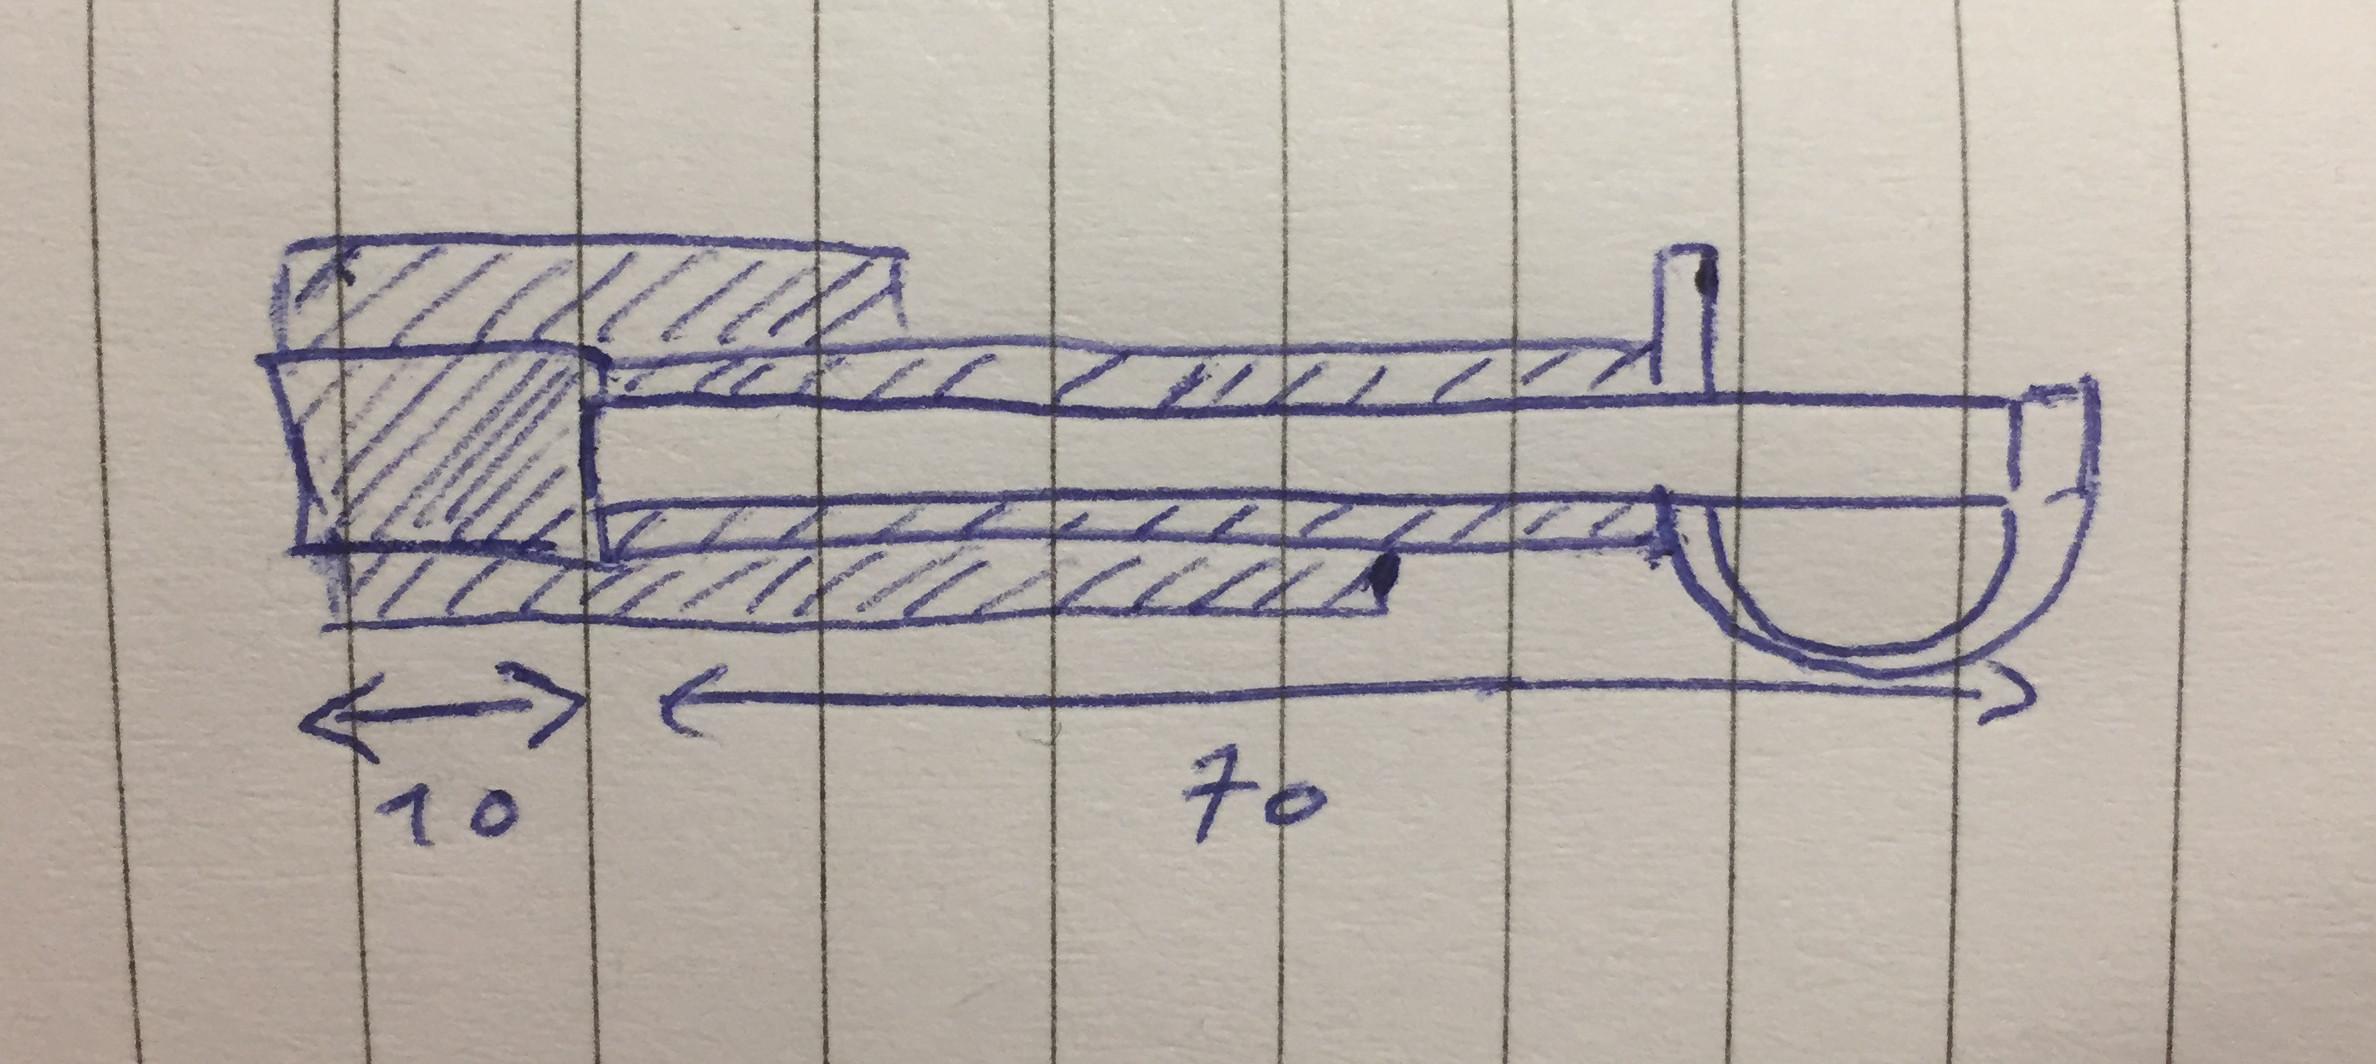 10 70